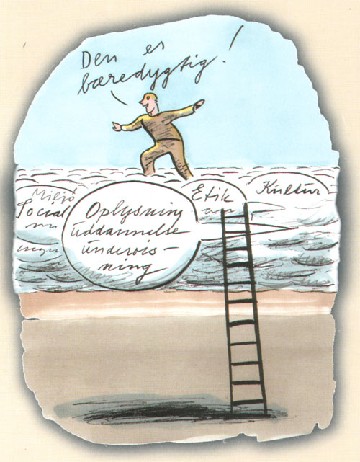 Den er
bæredygtig!
Miljø
Social
Oplysning
uddannelse
undervis-
ning
Etik
Kultur